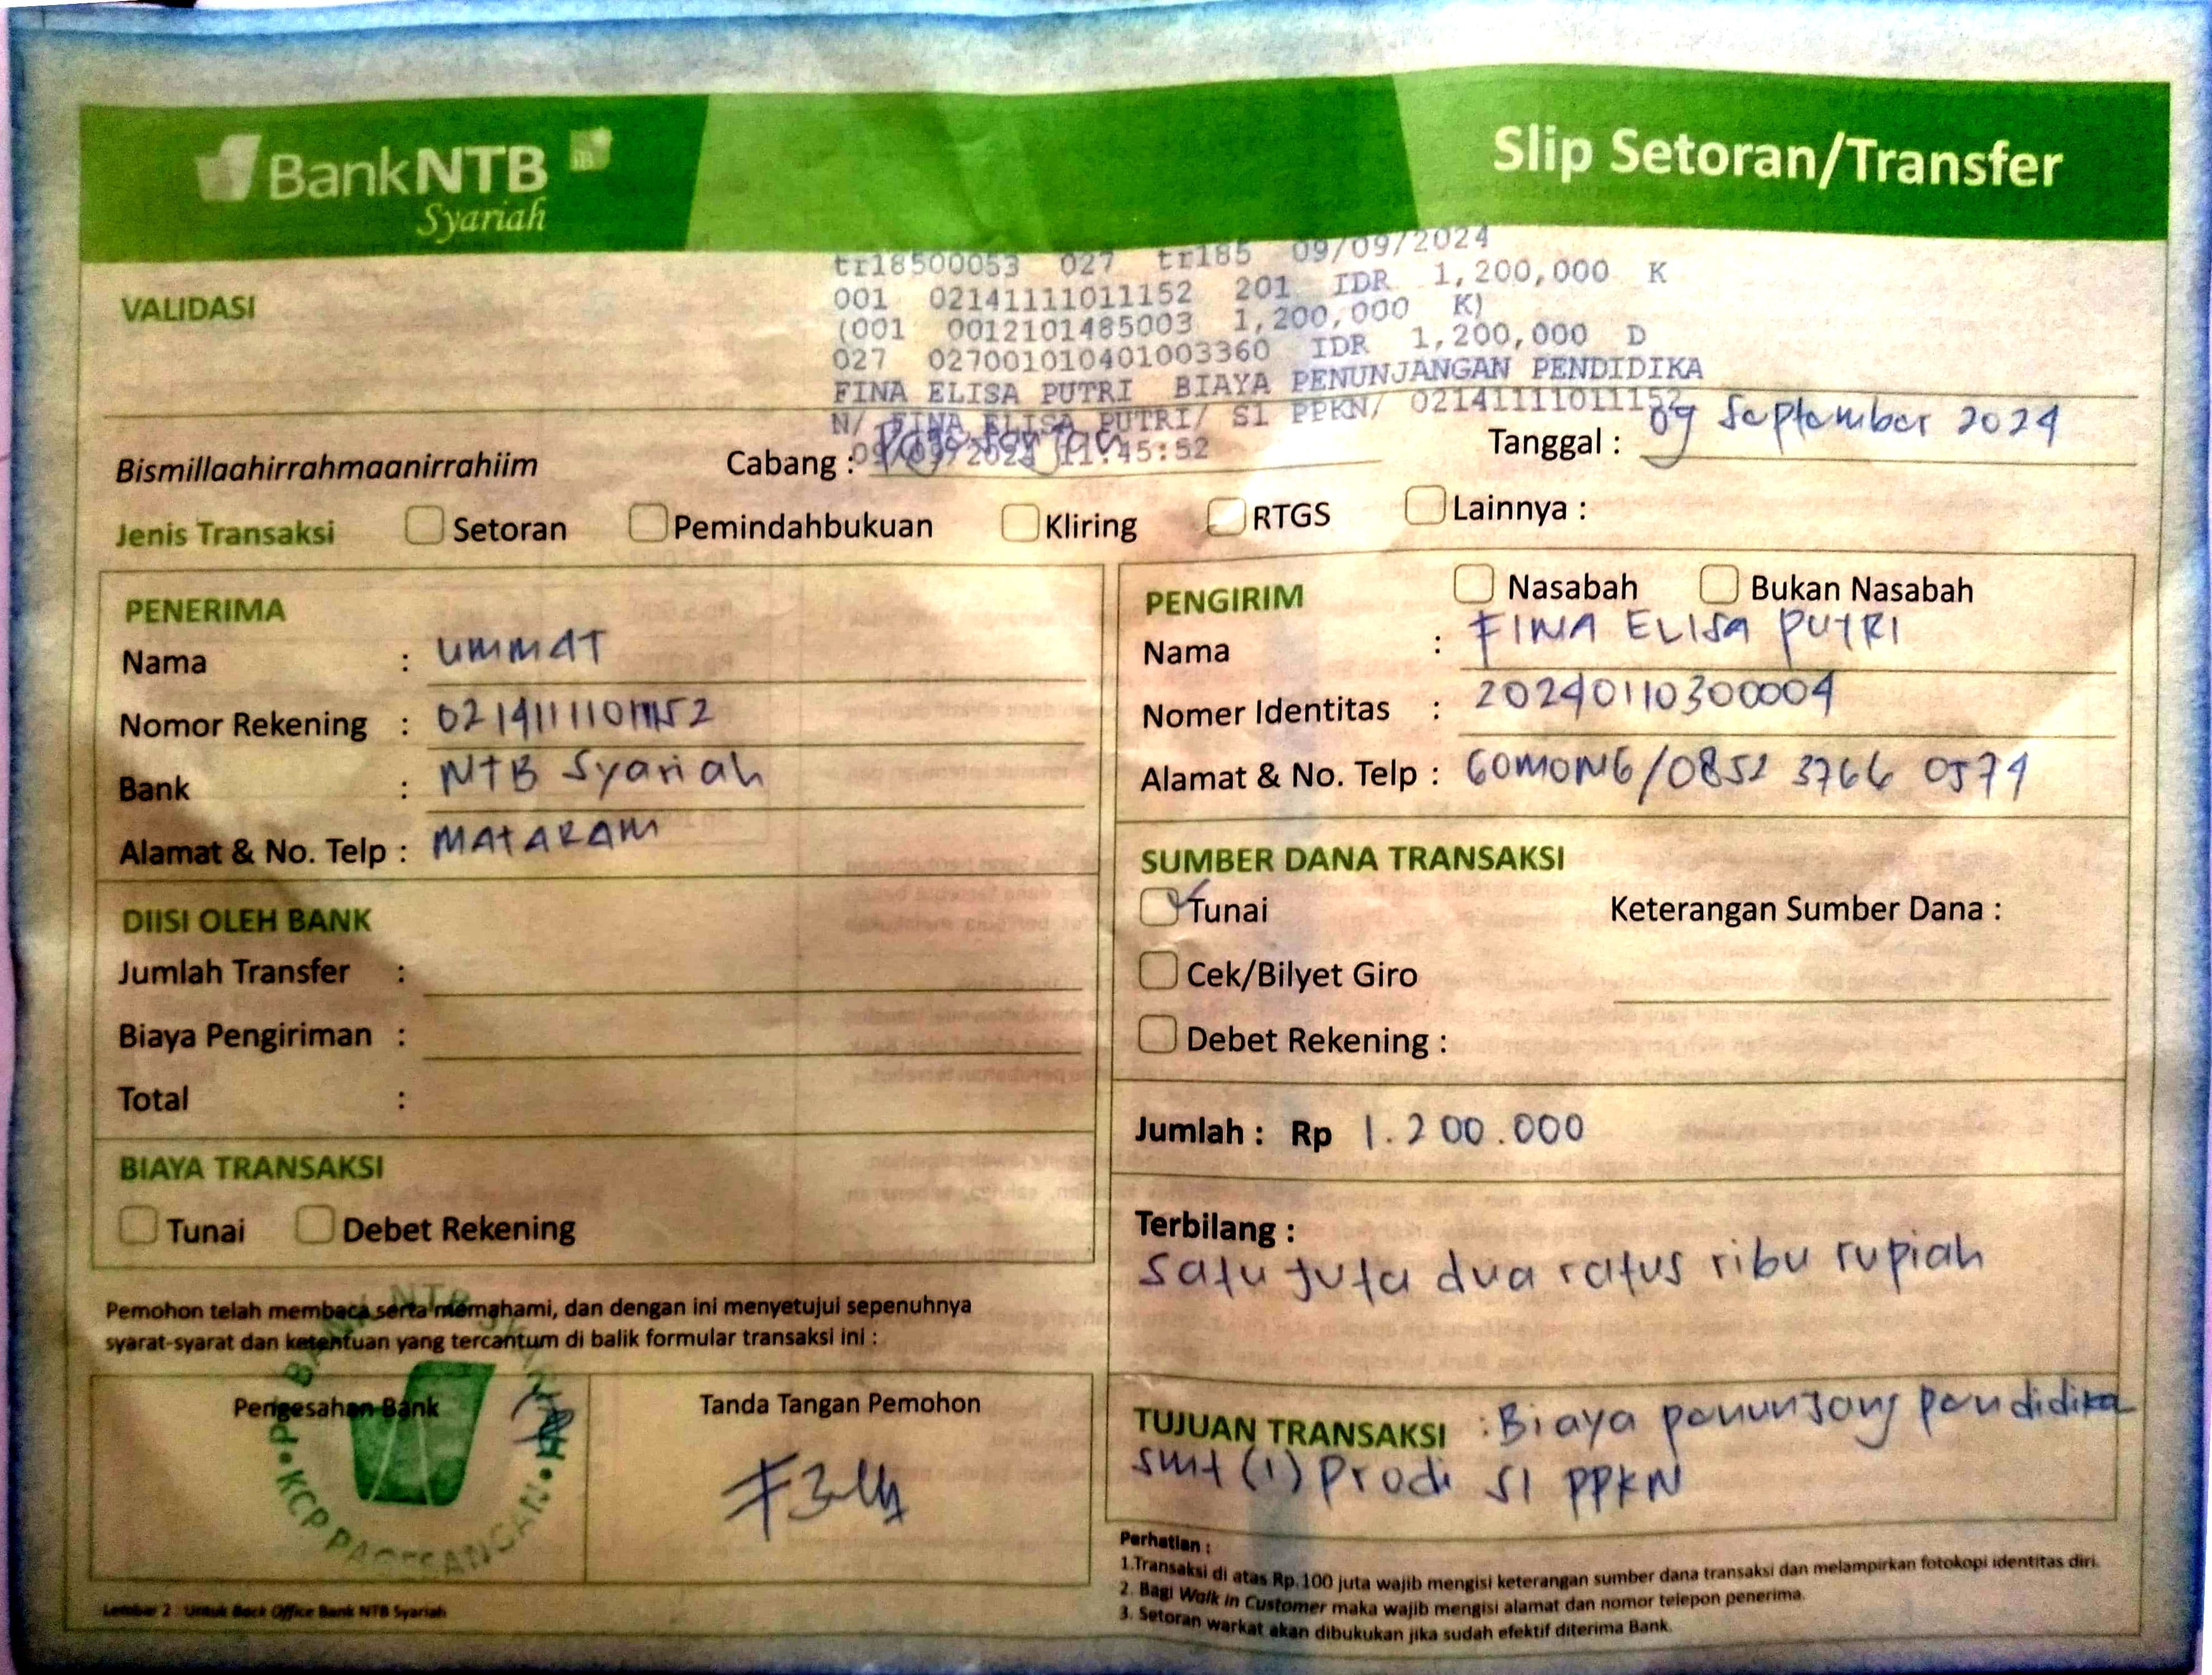 BankNTB
Syariah
Slip Setoran/Transfer
tr18500053 027 tr185 09/09/2024
001 02141111011152 201 IDR 1,200,000 K
(001 0012101485003 1,200,000 K)
027 027001010401003360 IDR 1,200,000 D
FINA ELISA PUTRI BIAYA PENUNJANGAN PENDIDIKA
N/ FINA ELISA PUTRI/ S1 PPKN/ 02141111011152
09/09/2024 11:45:52
VALIDASI
Bismillaahirrahmaanirrahiim
Cabang :
Tanggal : 09 September 2024
Jenis Transaksi Setoran Pemindahbukuan Kliring RTGS Lainnya :
PENERIMA
Nama : UMMAT
Nomor Rekening : 02141111011152
Bank : NTB Syariah
Alamat & No. Telp : MATARAM
DIISI OLEH BANK
Jumlah Transfer :
Biaya Pengiriman :
Total :
BIAYA TRANSAKSI
Tunai Debet Rekening
Pemohon telah membaca serta memahami, dan dengan ini menyetujui sepenuhnya
syarat-syarat dan ketentuan yang tercantum di balik formular transaksi ini :
Pengesahan Bank
KCP PAGESANGAN
Tanda Tangan Pemohon
Lembar 2 : Untuk Back Office Bank NTB Syariah
PENGIRIM Nasabah Bukan Nasabah
Nama : FINA ELISA PUTRI
Nomer Identitas : 20240110300004
Alamat & No. Telp : GOMONG/0852 3766 0574
SUMBER DANA TRANSAKSI
Tunai Keterangan Sumber Dana :
Cek/Bilyet Giro
Debet Rekening :
Jumlah : Rp 1.200.000
Terbilang :
Satu juta dua ratus ribu rupiah
TUJUAN TRANSAKSI : Biaya penunjang pendidika
smt (1) Prodi S1 PPKN
Perhatian :
1.Transaksi di atas Rp.100 juta wajib mengisi keterangan sumber dana transaksi dan melampirkan fotokopi identitas diri.
2. Bagi Walk in Customer maka wajib mengisi alamat dan nomor telepon penerima.
3. Setoran warkat akan dibukukan jika sudah efektif diterima Bank.